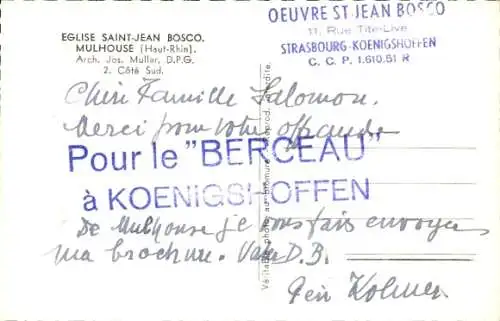 EGLISE SAINT-JEAN BOSCO.
MULHOUSE (Haut-Rhin).
Arch. Jos. Muller, D.P.G.
2. Côté Sud.
OEUVRE ST JEAN BOSCO
11, Rue Tite-Live
STRASBOURG-KOENIGSHOFFEN
C. C. P. 1.610.51 R
Chère Famille Salomon.
Merci pour votre offrande
Pour le "BERCEAU"
à KOENIGSHOFFEN
De Mulhouse je vous fais envoyer
ma brochure. Votre D.B.
Kolmer
Véritable photo au bromure Reprod. interdite.